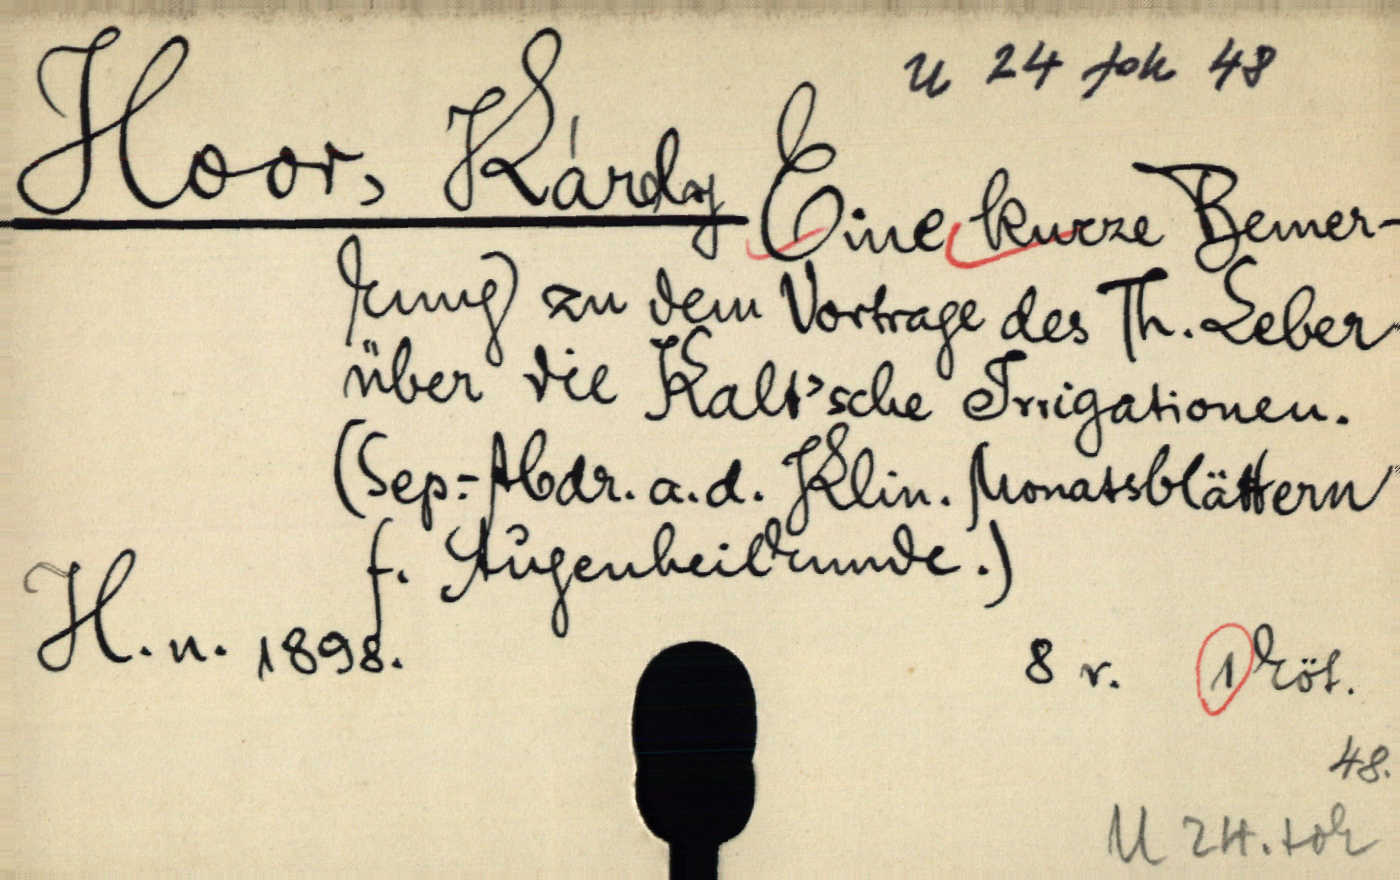 U 24 tok 48
Hoor, Károly Eine kurze Bemer-
kung zu dem Vortrage des Th. Leber
über die Kalt'sche Irrigationen.
(Sep.-Abdr. a. d. Klin. Monatsblättern
f. Augenheilkunde.)
H. n. 1898. 8 r. 1 köt.
48.
U 24. tok